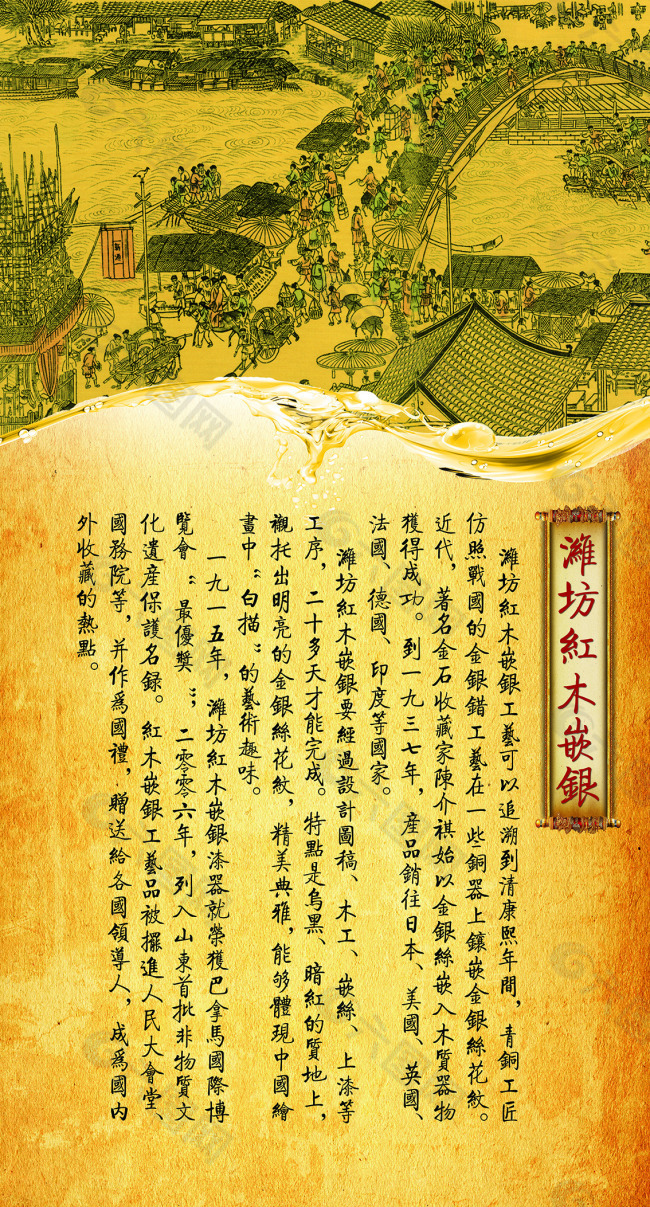 濰坊紅木嵌銀
濰坊紅木嵌銀工藝可以追溯到清康熙年間，青銅工匠
仿照戰國的金銀錯工藝在一些銅器上鑲嵌金銀絲花紋。
近代，著名金石收藏家陳介祺始以金銀絲嵌入木質器物
獲得成功。到一九三七年，産品銷往日本、美國、英國、
法國、德國、印度等國家。
濰坊紅木嵌銀要經過設計圖稿、木工、嵌絲、上漆等
工序，二十多天才能完成。特點是烏黑、暗紅的質地上，
襯托出明亮的金銀絲花紋，精美典雅，能够體現中國繪
畫中“白描”的藝術趣味。
一九一五年，濰坊紅木嵌銀漆器就榮獲巴拿馬國際博
覽會“最優獎”，二零零六年，列入山東首批非物質文
化遺産保護名録。紅木嵌銀工藝品被擺進人民大會堂、
國務院等，并作爲國禮，贈送給各國領導人，成爲國内
外收藏的熱點。